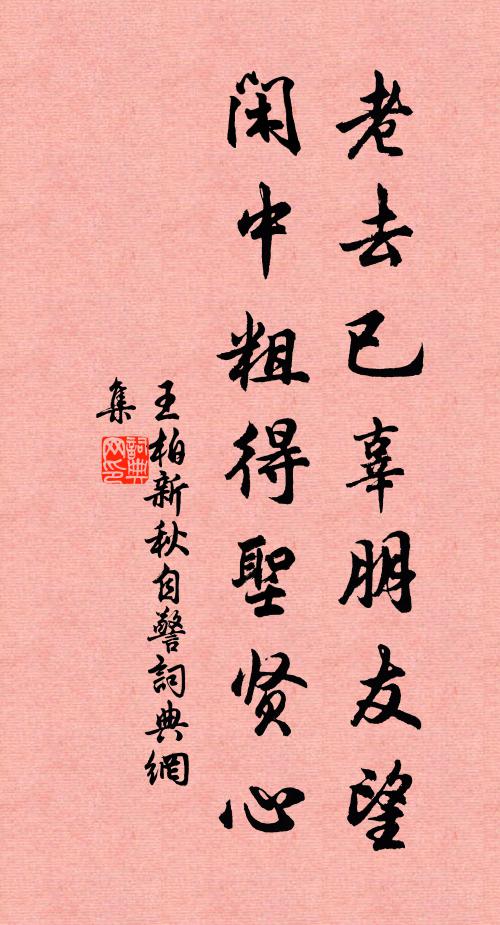 老去已辜朋友望
闲中粗得聖贤心
王柏新秋自警詞典網
集
詞典网印